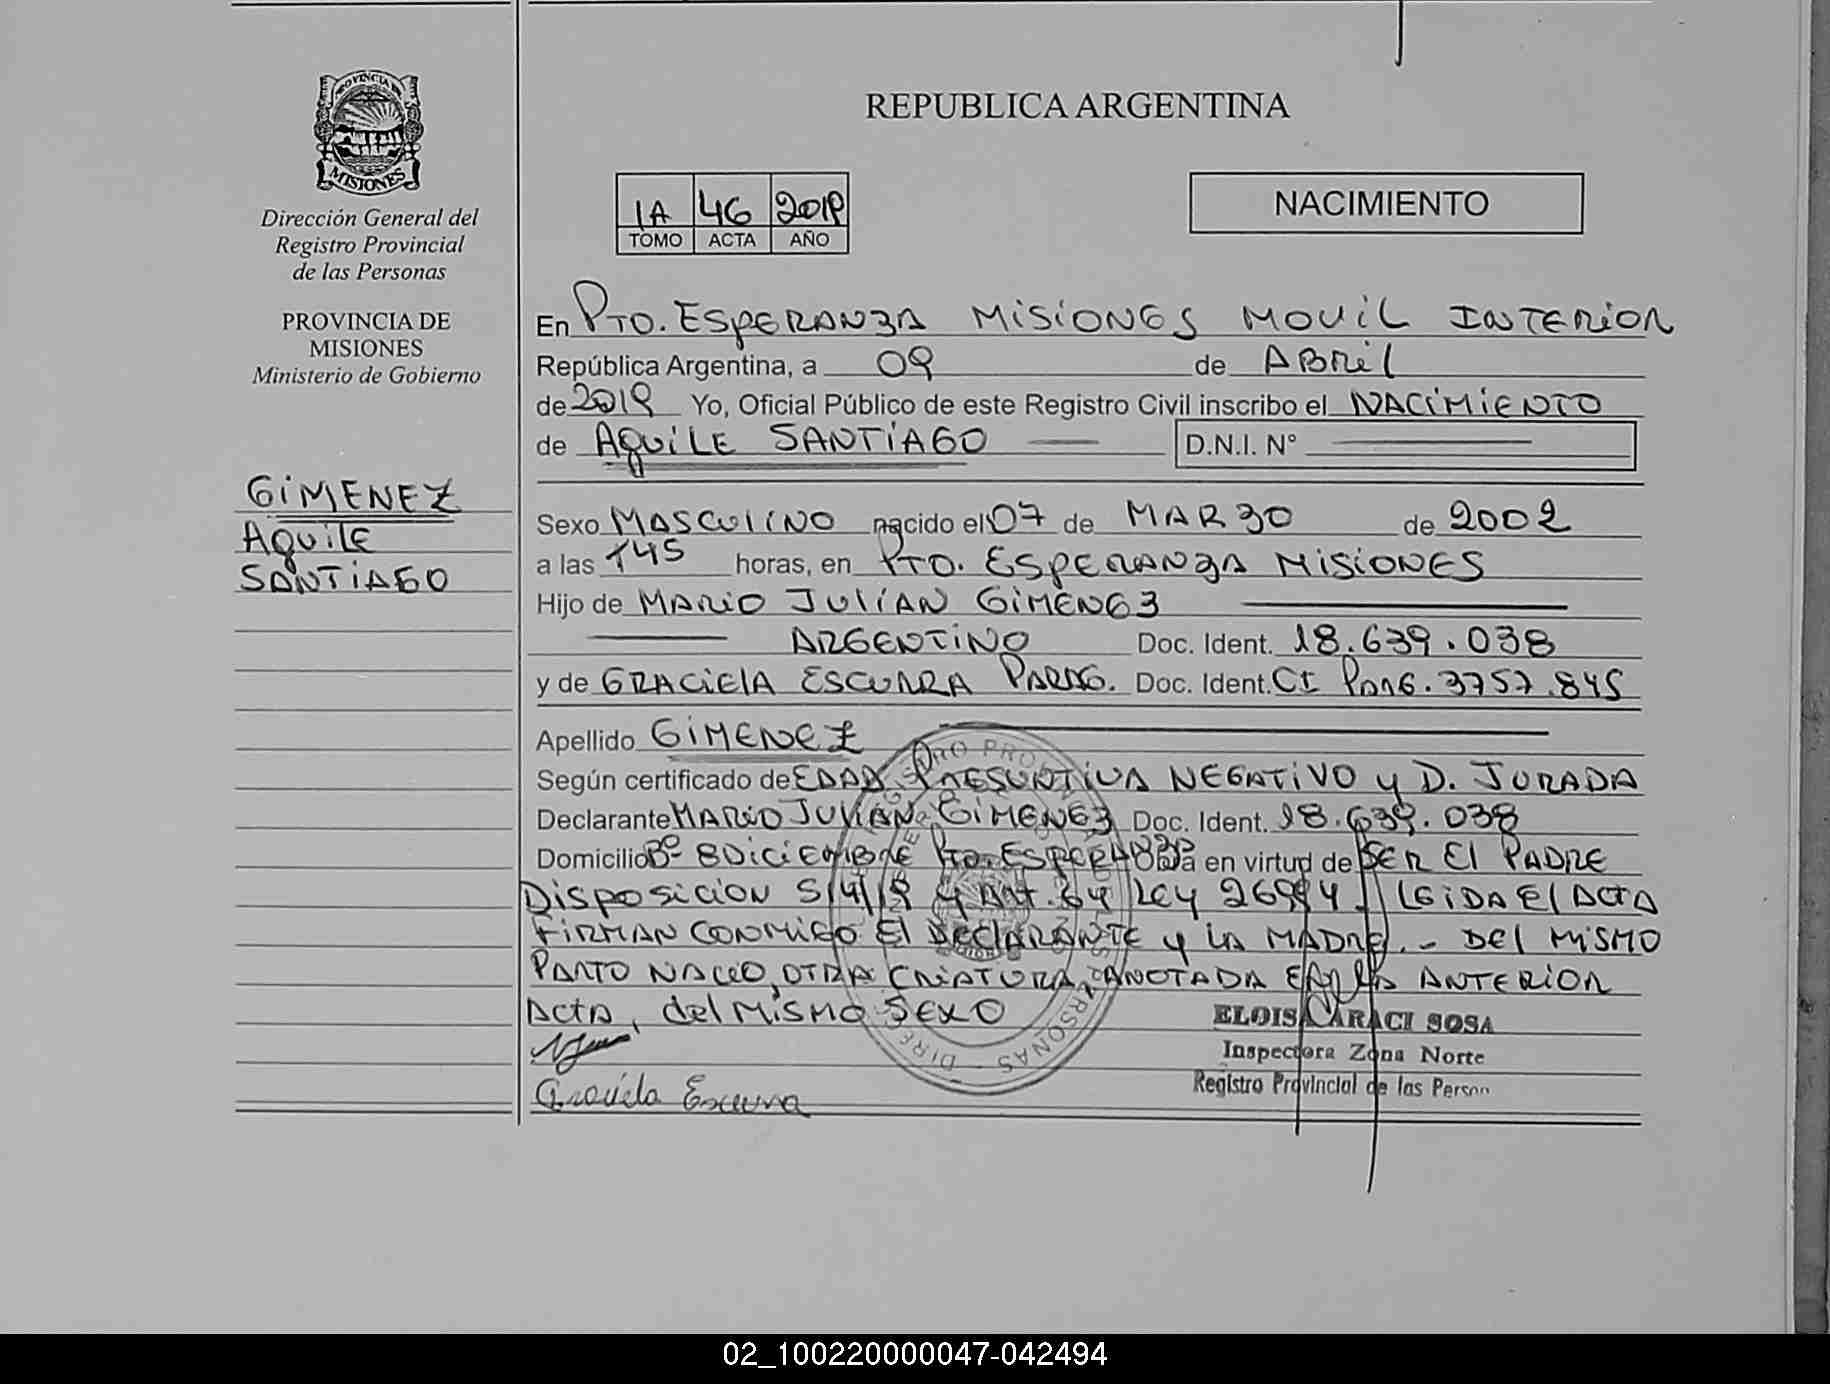 PROVINCIA
MISIONES
Dirección General del
Registro Provincial
de las Personas
PROVINCIA DE
MISIONES
Ministerio de Gobierno
GIMENEZ
AQUILE
SANTIAGO
REPUBLICA ARGENTINA
1A 46 2019
TOMO ACTA AÑO
NACIMIENTO
En PTO. ESPERANZA MISIONES MOVIL INTERIOR
República Argentina, a 09 de ABRIL
de 2019 Yo, Oficial Público de este Registro Civil inscribo el NACIMIENTO
de AQUILE SANTIAGO — D.N.I. N° —
Sexo MASCULINO nacido el 07 de MARZO de 2002
a las 145 horas, en PTO. ESPERANZA MISIONES
Hijo de MARIO JULIAN GIMENEZ —
— ARGENTINO Doc. Ident. 18.639.038
y de GRACIELA ESCURRA PARAG. Doc. Ident. CI PARG. 3757.845
Apellido GIMENEZ —
Según certificado de EDAD PRESUNTIVA NEGATIVO y D. JURADA
Declarante MARIO JULIAN GIMENEZ Doc. Ident. 18.639.038
Domicilio B° 8 DICIEMBRE PTO. ESPERANZA en virtud de SER El PADRE
DISPOSICION 514/18 y ART. 64 LEY 26994. LEIDA El ACTA
FIRMAN CONMIGO El DECLARANTE y LA MADRE.- DEl MISMO
PARTO NACIO, OTRA CRIATURA, ANOTADA EN LA ANTERIOR
ACTA, del MISMO SEXO
ELOISA ARACI SOSA
Inspectora Zona Norte
Registro Provincial de las Person
Graciela Escurra
02_100220000047-042494